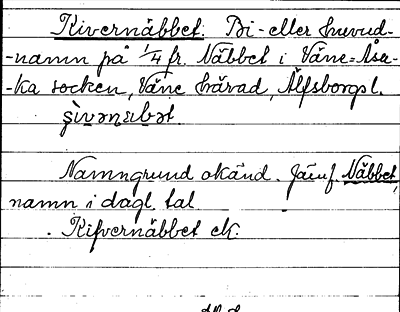 Kivernäbbet: Bi- eller huvud-
-namn på 1/4 fr. Näbbet i Väne-Åsa-
-ka socken, Väne härad, Älfsborgs l.
Namngrund okänd. Jämf. Näbbet,
namn i dagl. tal
Kifvernäbbet ek.